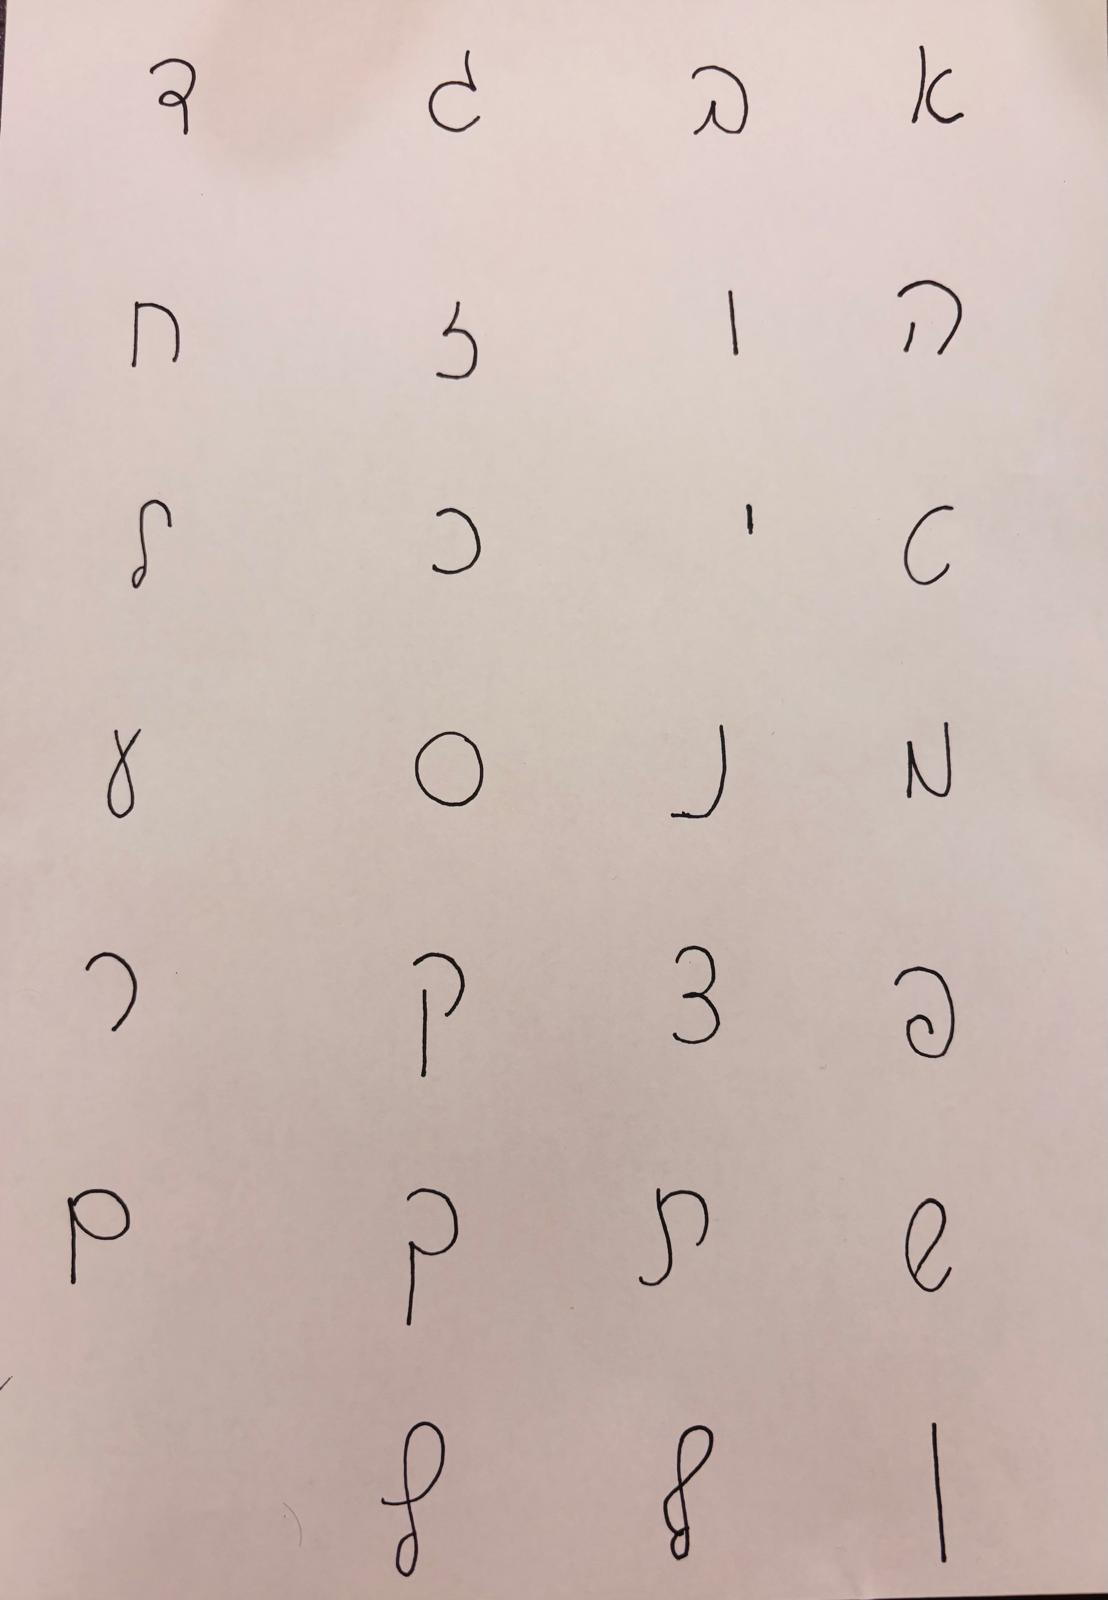 א ב ג ד
ה ו ז ח
ט י כ ל
מ נ ס ע
פ צ ק ר
ש ת ך ם
ן ף ץ